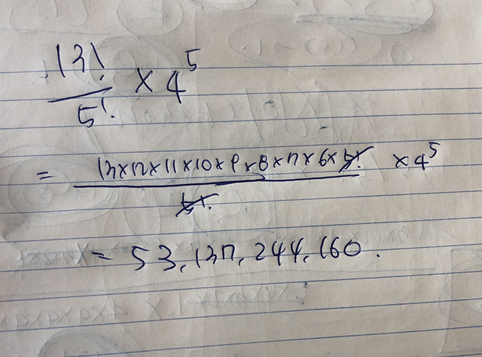 13!/5! × 4⁵
= 13×12×11×10×9×8×7×6×5!/5! × 4⁵
= 53,137,244,160.